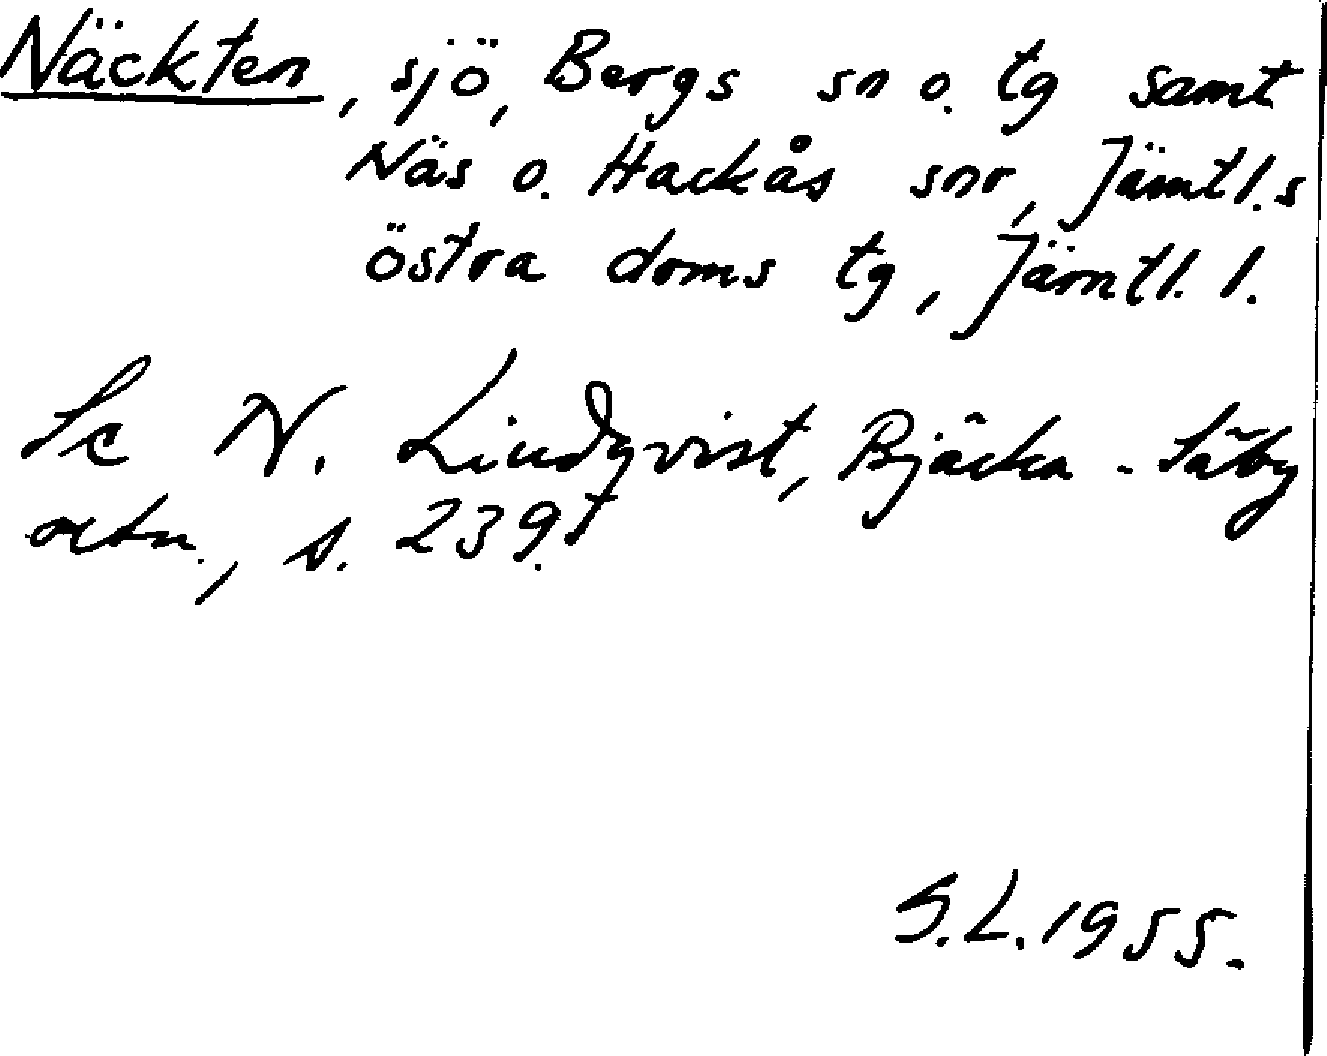 Näckten, sjö, Bergs sn o. tg samt
Näs o. Hackås snr, Jämtl.s
östra doms tg, Jämtl. l.
Se N. Lindqvist, Bjärka-Säby
ortn., s. 239.
S.L. 1955.